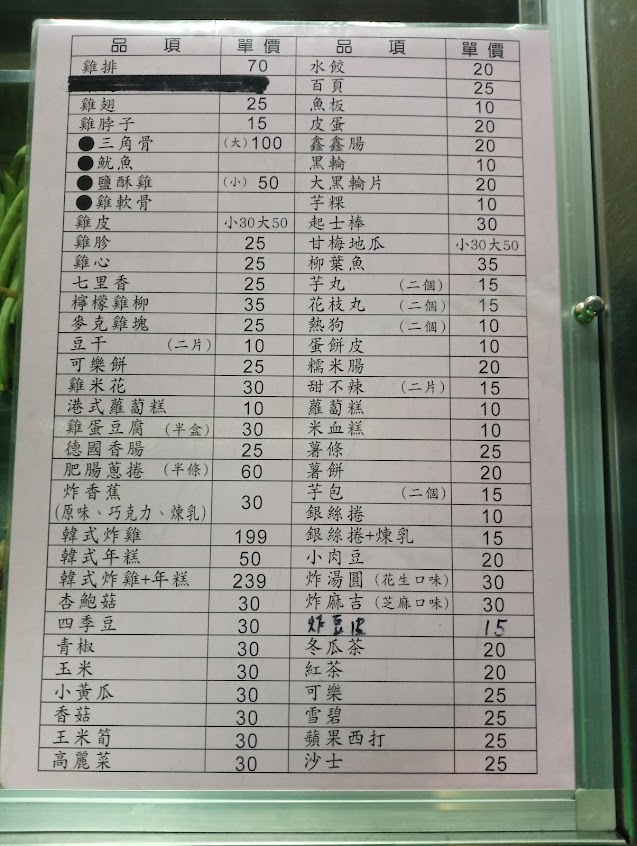 品 項 單價 品 項 單價
雞排 70 水餃 20
百頁 25
雞翅 25 魚板 10
雞脖子 15 皮蛋 20
●三角骨 (大)100 鑫鑫腸 20
●魷魚 黑輪 10
●鹽酥雞 (小) 50 大黑輪片 20
●雞軟骨 芋粿 10
雞皮 小30大50 起士棒 30
雞胗 25 甘梅地瓜 小30大50
雞心 25 柳葉魚 35
七里香 25 芋丸 (二個) 15
檸檬雞柳 35 花枝丸 (二個) 15
麥克雞塊 25 熱狗 (二個) 10
豆干 (二片) 10 蛋餅皮 10
可樂餅 25 糯米腸 20
雞米花 30 甜不辣 (二片) 15
港式蘿蔔糕 10 蘿蔔糕 10
雞蛋豆腐 (半盒) 30 米血糕 10
德國香腸 25 薯條 25
肥腸蔥捲 (半條) 60 薯餅 20
炸香蕉 30 芋包 (二個) 15
(原味、巧克力、煉乳) 銀絲捲 10
韓式炸雞 199 銀絲捲+煉乳 15
韓式年糕 50 小肉豆 20
韓式炸雞+年糕 239 炸湯圓 (花生口味) 30
杏鮑菇 30 炸麻吉 (芝麻口味) 30
四季豆 30 炸豆皮 15
青椒 30 冬瓜茶 20
玉米 30 紅茶 20
小黃瓜 30 可樂 25
香菇 30 雪碧 25
玉米筍 30 蘋果西打 25
高麗菜 30 沙士 25